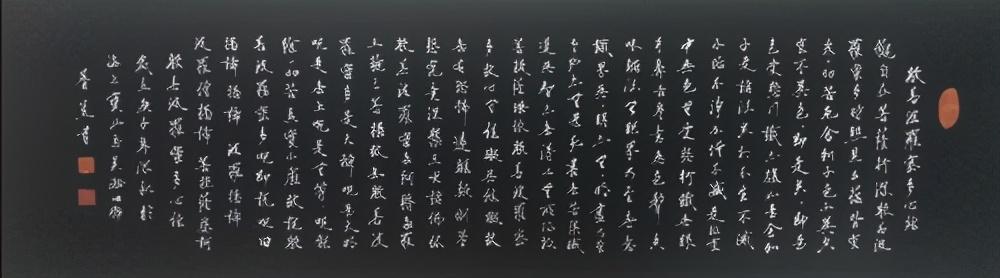 般若波羅蜜多心經
觀自在菩薩行深般若波
羅蜜多時照見五蘊皆空
度一切苦厄舍利子色不異空
空不異色色即是空空即是
色受想行識亦復如是舍利
子是諸法空相不生不滅
不垢不淨不增不減是故空
中無色無受想行識無眼
耳鼻舌身意無色聲香
味觸法無眼界乃至無意
識界無無明亦無無明盡乃
至無老死亦無老死盡無苦集滅
道無智亦無得以無所得故
菩提薩埵依般若波羅蜜
多故心無罣礙無罣礙故
無有恐怖遠離顛倒夢
想究竟涅槃三世諸佛依
般若波羅蜜多故得阿耨多羅
三藐三菩提故知般若波
羅蜜多是大神咒是大明
咒是無上咒是無等等咒能
除一切苦真實不虛故說般
若波羅蜜多咒即說咒曰
揭諦揭諦波羅揭諦
波羅僧揭諦菩提薩婆訶
般若波羅蜜多心經